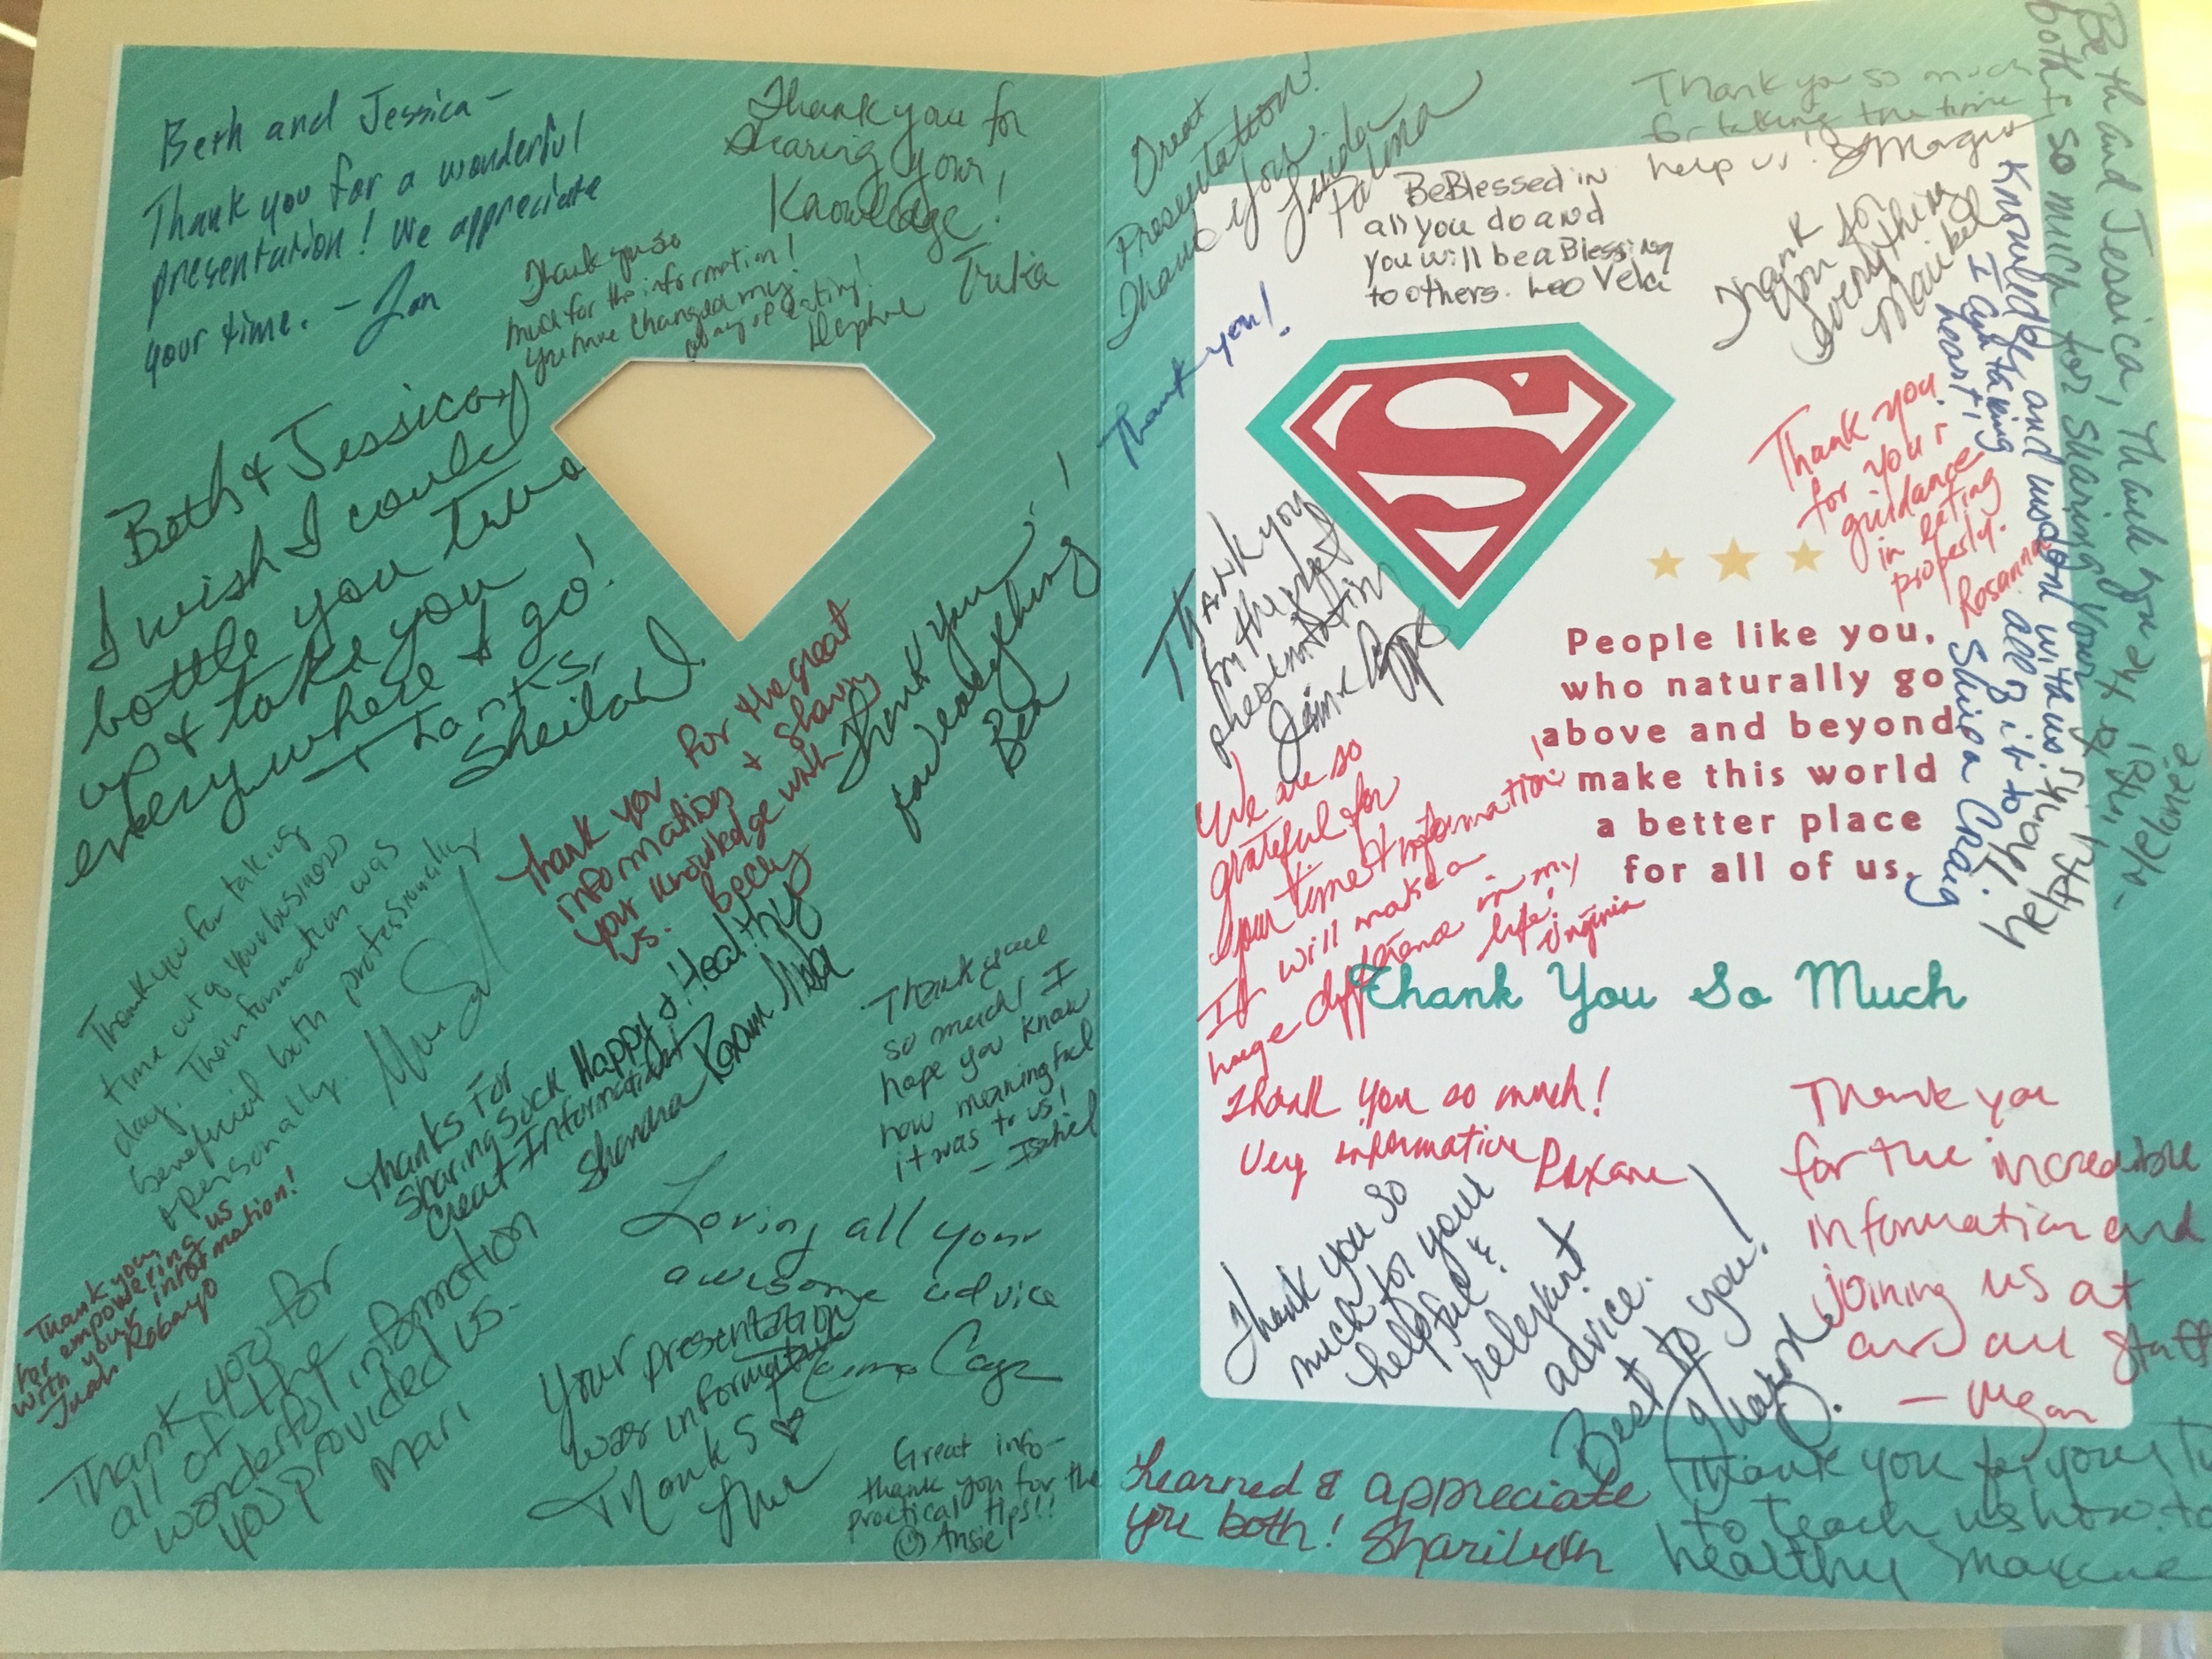 Beth and Jessica -
Thank you for a wonderful
presentation! We appreciate
your time. - Jan
Thank you for
Sharing your
Knowledge!
Thank you so
much for the information!
You have changed my
way of eating!
Beth & Jessica,
I wish I could
bottle you two
up & take you
everywhere I go!
Thanks,
Sheila D.
Thank you for the great
information & sharing
your knowledge with
us. Becky
Thank you
for everything!
Bea
Thank you for taking
time out of your business
day. The information was
beneficial both professionally
& personally.
Thanks For
Sharing Such Happy & Healthy
Great Information!
Shandra
Thank you
so much! I
hope you know
how meaningful
it was to us!
- Isabel
Thank you
for empowering us
with your information!
Juan Robayo
Thank you for
all of the
wonderful information
you provided us.
Mari
Loving all your
awesome advice
Your presentation
was informative
Thanks ♡
Great info-
thank you for the
practical tips!!
☺ Ansie
Great
Presentation!
Thank you
Linda
Palma
Thank you so much
for taking the time to
help us!
Be Blessed in
all you do and
you will be a Blessing
to others. Leo Vela
Thank
You for
Everything
Maribel
Thank you!
Beth and Jessica, Thank you
both so much for sharing your
Knowledge and wisdom with us.
I am taking all of it to
heart! Shirica Craig
S
Thank you
for your
guidance
in eating
properly.
Rosanna
Thank you
for the
presentation
People like you,
who naturally go
above and beyond
make this world
a better place
for all of us.
We are so
grateful for
your time & information!
It will make a
huge difference in my
life! Virginia
Thank You So Much
Thank you so much!
Very informative Roxane
Thank you so
much for your
helpful &
relevant
advice.
Best to you!
Thank you
for the incredible
information and
joining us at
our all staff
- Megan
Learned & appreciate
you both! Sharilynn
Thank you for your
to teach us how to
healthy Maxine